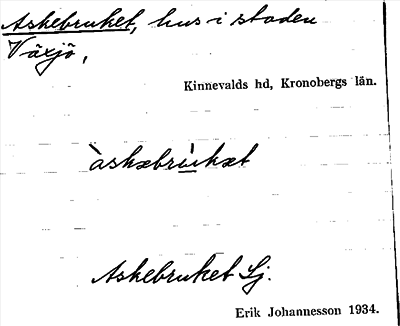 Askebruket, hus i staden
Växjö,
Kinnevalds hd, Kronobergs län.
àskæbrù̲kæt
Askebruket Lj.
Erik Johannesson 1934.